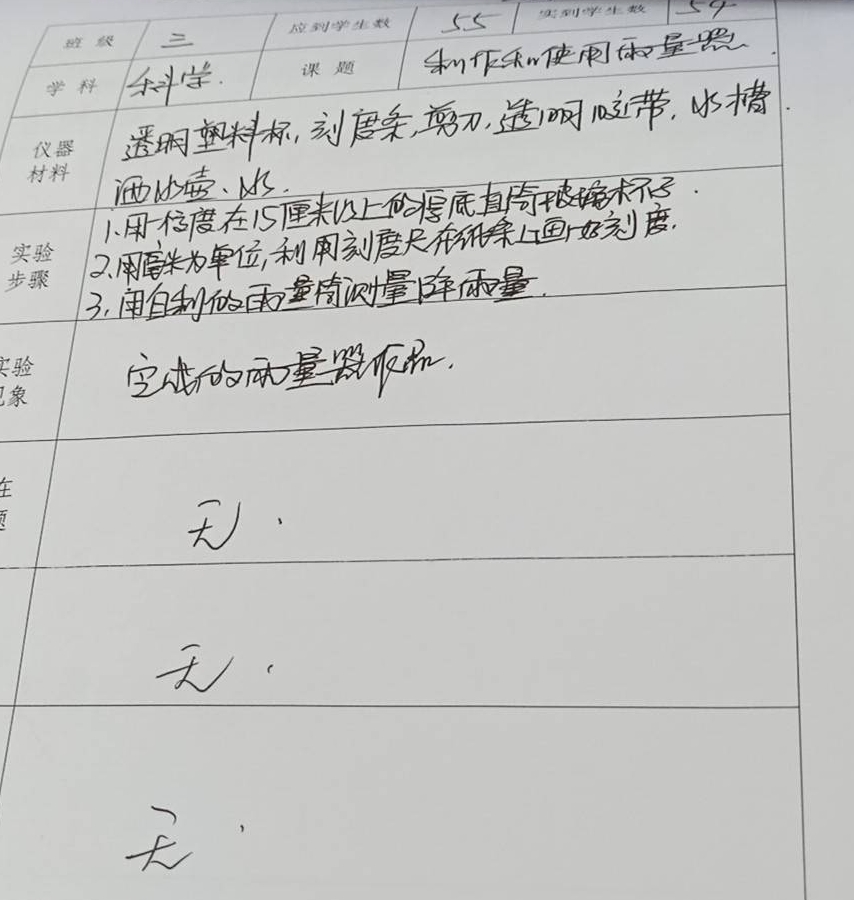 班 级 三 应到学生数 55 实到学生数 54
学 科 科学. 课 题 制作和使用雨量器.
仪器材料 透明塑料杯,刻度条,剪刀,透明胶带,水槽.
洒水壶、水.
实验步骤 1.用一个高度在15厘米以上的厚底直筒玻璃杯子.
2.用毫米为单位,利用刻度尺在纸条上画好刻度.
3.用自制的雨量筒测量降雨量.
实验现象 完成的雨量器作品.
在
题 无.
无.
无.